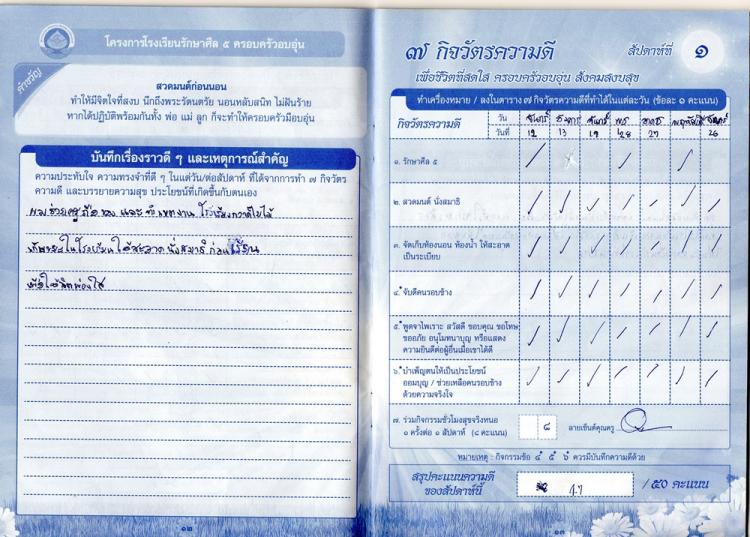 โครงการโรงเรียนรักษาศีล ๕ ครอบครัวอบอุ่น
คำขวัญ
สวดมนต์ก่อนนอน
ทำให้มีจิตใจที่สงบ นึกถึงพระรัตนตรัย นอนหลับสนิท ไม่ฝันร้าย
หากได้ปฏิบัติพร้อมกันทั้ง พ่อ แม่ ลูก ก็จะทำให้ครอบครัวมีอบอุ่น
บันทึกเรื่องราวดี ๆ และเหตุการณ์สำคัญ
ความประทับใจ ความทรงจำที่ดี ๆ ในแต่ละวัน/ต่อสัปดาห์ ที่ได้จากการทำ ๗ กิจวัตร
ความดี และบรรยายความสุข ประโยชน์ที่เกิดขึ้นกับตนเอง
ผมช่วยครูถือของ และ
ในโรงเรียนให้สะอาด นั่งสมาธิก่อนเรียน
เพื่อให้จิตผ่องใส
๑๒
๗ กิจวัตรความดี
สัปดาห์ที่ ๑
เพื่อชีวิตที่สดใส ครอบครัวอบอุ่น สังคมสงบสุข
ทำเครื่องหมาย / ลงในตาราง ๗ กิจวัตรความดีที่ทำได้ในแต่ละวัน (ข้อละ ๑ คะแนน)
กิจวัตรความดี
วัน จันทร์ อังคาร จันทร์
วันที่ 12 13 19 27 26
๑. รักษาศีล ๕
๒. สวดมนต์ นั่งสมาธิ
๓. จัดเก็บห้องนอน ห้องน้ำ ให้สะอาด
เป็นระเบียบ
๔. จับดีคนรอบข้าง
๕. พูดจาไพเราะ สวัสดี ขอบคุณ ขอโทษ
ขออภัย อนุโมทนาบุญ หรือแสดง
ความยินดีต่อผู้อื่นเมื่อเขาได้ดี
๖. บำเพ็ญตนให้เป็นประโยชน์
ออมบุญ / ช่วยเหลือคนรอบข้าง
ด้วยความจริงใจ
๗. ร่วมกิจกรรมชั่วโมงสุขจริงหนอ
๑ ครั้งต่อ ๑ สัปดาห์ (๘ คะแนน)
๘
ลายเซ็นต์คุณครู
หมายเหตุ : กิจกรรมข้อ ๔ ๕ ๖ ควรมีบันทึกความดีด้วย
สรุปคะแนนความดี
ของสัปดาห์นี้
/ ๕๐ คะแนน
๑๓